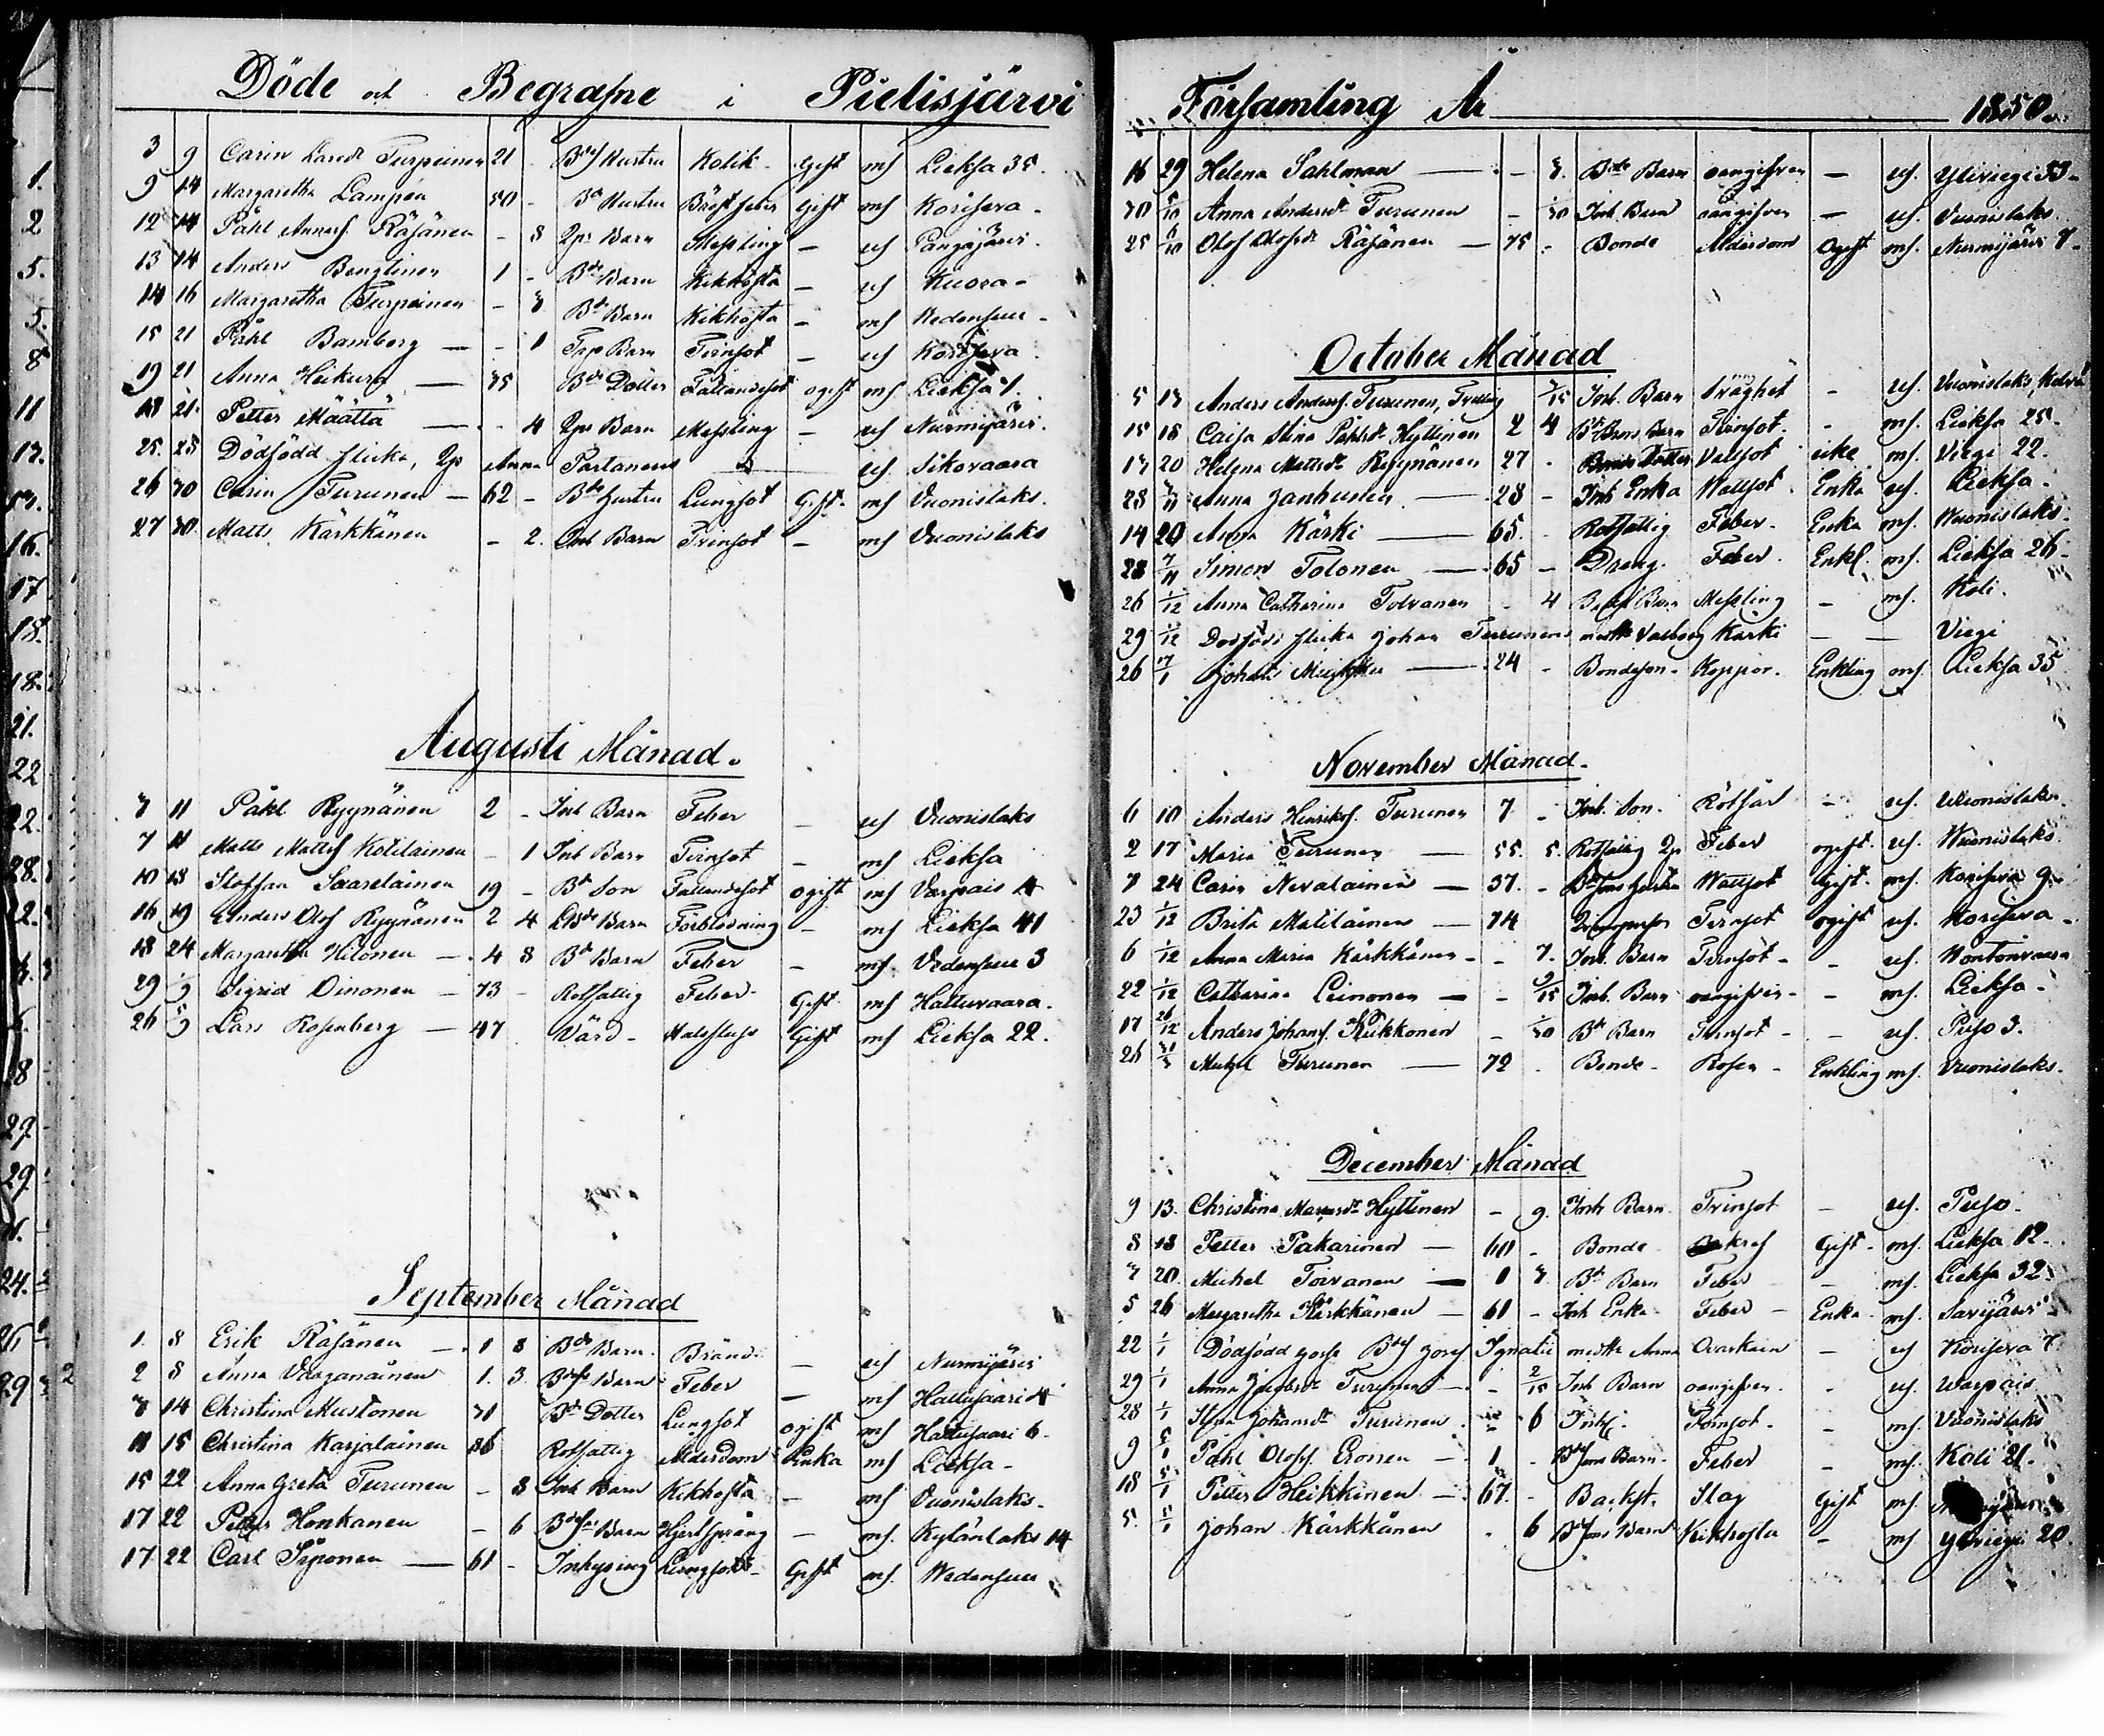 Döde och Begrafne i Pielisjärvi
3 9 Carin Larsdr Turpeinen 21 - Bds Hustru Kolik Gift mf Lieksa 35.
9 14 Margaretha Lampén 50 - Bd Hustru Bröstfeber Gift mf Korisera -
12 14 Påhl Andersf. Räsänen - 8 2ps Barn Messling - uf Pangajärvi.
13 14 Anders Bengtinen 1 - Bds Barn Kikhosta - uf Kuora -
14 16 Margaretha Turpeinen - 3 Bds Barn Kikhosta - mf Kedensuu -
15 21 Påhl Bamberg — - 1 Tsp Barn Tvinsot - uf Korisera
19 21 Anna Heikura — 35 Bds Dotter Fallandesot ogift mf Lieksa 1.
18 21. Petter Määttä — - 4 2ps Barn Messling - uf Nurmijärvi.
25. 25 Dödfödd flicka, 2ps Anna Partanens — uf. Sikovaara
26 30 Carin Turunen — 62 - Bds Hustru Lungsot Gift. mf Vuonislaks.
27 30. Matts Kärkkänen - 2. Inh Barn Tvinsot - mf Vuonislaks
Augusti Månad.
3 11 Påhl Ryynänen 2 - Inh Barn Feber - uf Vuonislaks
7 11 Matts Mattsf Kotilainen - 1 Inh Barn Tvinsot - mf Lieksa
10 18 Staffan Saarelainen 19 - Bd Son Fallandesot ogift mf Varpais 4
16 19 Anders Olof Ryynänen 2 4 Bds Barn Förblödning - mf Lieksa 41
18 24 Margaretha Hilonen — 4 8 Bd Barn Feber - mf. Vedensuu 3
29 1/9 Sigrid Oinonen — 73 - Rotfattig Feber Gift mf Hattuvaara.
26 5/9 Lars Rosenberg — 47 Värd - Halsfluss Gift mf Lieksa 22.
September Månad
1. 8 Erik Räsänen — 1 8 Bds Barn. Bränd - uf Nurmijärvi
2 8 Anna 1. 3. Barn Feber — mf Hattusaari 4
3 14 Christina Mustonen 31 Bds Dotter Lungsot ogift mf Hattusaari 6.
11 15 Christina Karjalainen 86 Rotfattig Ålderdom Enka mf Lieksa -
15 22 Anna Greta Turunen - 8 Inh Barn Kikhosta - mf Vuonislaks.
17 22 Petter Honkanen - 6 Barn Hjertsprång - mf. Kylänlaks 14
17 22 Carl Siponen — 61 - Inhysing Lungsot - Gift mf. Wedensuu
Församling År 1850.
16 29 Helena Sahlman — - 3. Bds Barn oangifven — uf. Yliviegi 33 -
30 5/10 Anna Andersdr Turunen - 1/30 Inh. Barn oangifven — uf. Vuonislaks.
25 6/10 Olof Olofsf Räsänen — 75 - Bonde Ålderdom Ogift mf. Nurmijärvi 7 -
October Månad
5 13 Anders Andersf. Turunen, Trilling /15 Inh. Barn Svaghet - uf. Vuonislaks,
15 18 Caisa Stina Påhlsdr Hyttinen 2 4 Barn Tvinsot. - mf. Lieksa 25 -
13 20 Helena Mattsdr Ryynänen 27 - Bonde Dotter Vattsot mf. Viegi 22.
28 /11 Anna Janhunen — 28 - Inh Enka Wattsot Enka uf. Lieksa -
14 20 Anna Kärki — 65. - Rotfattig Feber - Enka mf. Wuonislaks -
28 7/11 Simon Tolonen — 65 - Dräng. Feber. Enkl. mf. Lieksa 26 -
26 1/12 Anna Catharina Tolvanen - 4 Barn Messling - mf. Koli.
29 1/12 Dödfödd flicka Johan Turunens m Valborg Kärki — — Viegi
26 17/1 Johan — 24 - Bondeson - Koppor. Enkling mf. Lieksa 35
November Månad.
6 10 Anders Henriksf. Turunen 7 - Inh. Son. Rötsår - uf. Wuonislaks.
2 17 Maria Turunen — 55. 5. Rotfattig 2ps Feber ogift. uf. Wuonislaks
7 24 Carin Nevalainen — 37. - Wattsot Gift. mf. Korisera 9 -
23 1/12 Brita Matilainen — 74 Tvinsot ogift uf. Korisera -
6 1/12 Anna Maria Kärkkänen - - 7. Inh. Barn Tvinsot - - uf. Kontonvaara
22 1/12 Catharina Leinonen — - 9/15 Inh. Barn oangifven - - mf. Lieksa -
17 26/12 Anders Johansf. Kukkonen - 1/30 Bds Barn Tvinsot - - uf. Puso 3.
26 Michel Turunen — 72 - Bonde - Rosen - Enkling mf. Vuonislaks.
December Månad
9 13. Christina Hyttinen - 9. Inh Barn Tvinsot - uf. Puso.
8 18 Petter Pakarinen — 60 - Bonde Gift - mf. Lieksa 12.
7 20. Michel Toivanen — 1 7. Bds Barn Feber - mf. Lieksa 32
5 26 Margaretha Kärkkänen — 61 - Inh Enka Feber - Enka - mf. Savijärvi -
22 1/1 Dödfödd gosse Ignatii Anna Ovaskain - uf Korisera 7
29 1/1 Anna Turunen - - 2/15 Inh Barn oangifven - uf. Warpais
28 1/1 Stina Johansdr Turunen - 6 Inh. Tvinsot - - mf. Vuonislaks
9 5/1 Påhl Olofsf. Eronen — 1 - Barn - Feber - mf. Koli 21.
18 5/1 Petter Heikkinen — 67. - Backst. Slag Gift mf.
5. 5/1 Johan Kärkkänen - 6 Barn Kikhosta - mf Yliviegi 20.